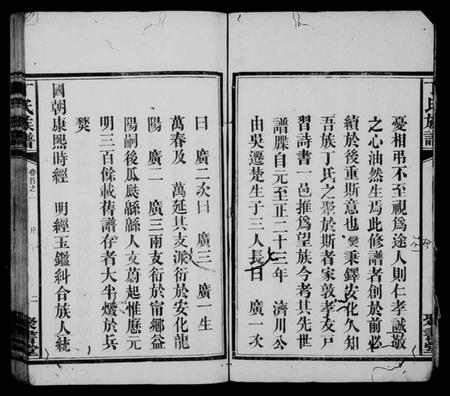 氏族譜
憂相弔不至視為途人則仁孝誠敬
之心油然生焉此修譜者創於前必
續於後重斯意也樊秉鐸安化久知
吾族丁氏之聚於斯者家敦孝友戸
習詩書一邑推為望族今考其先世
譜牒自元至正二十三年 濟川公
由吳遷楚生子三人長曰 廣一次
聚書堂
曰 廣二次曰 廣三 廣一生
萬春及 萬延其支派衍於安化龍
陽 廣二 廣三兩支衍於甯鄉益
陽嗣後瓜瓞緜緜人文蔚起惟歷元
明三百餘載舊譜存者大半燬於兵
燹
國朝康熙時經 明經玉鑑糾合族人統
氏族譜
卷首之一
二
聚書堂